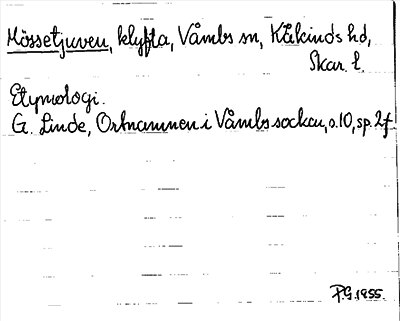 Mössetjuven, klyfta, Våmbs sn, Kåkinds hd,
Skar. l.
Etymologi.
G. Linde, Ortnamnen i Våmbs socken, s.10, sp. 2 f.
P.G. 1955.